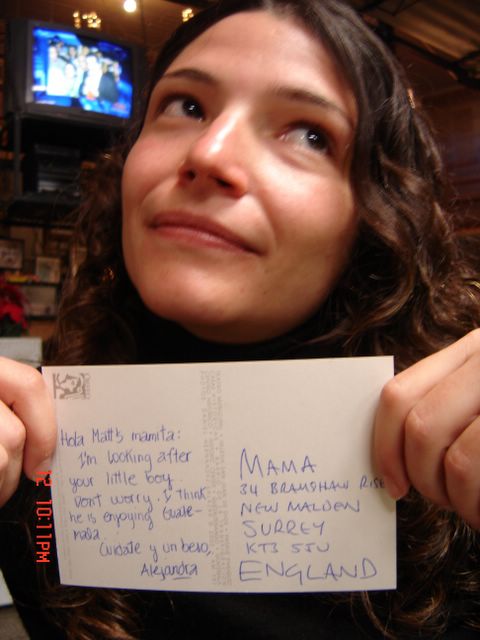 Hola Matt's mamita:
I'm looking after
your little boy.
Don't worry. I think
he is enjoying Guate-
mala.
Cuidate y un beso,
Alejandra
MAMA
34 BRAMSHAW RISE
NEW MALDEN
SURREY
KT3 5JU
ENGLAND
12 10:11PM